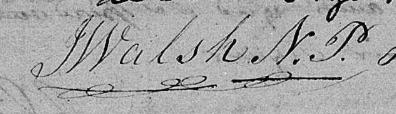 JWalsh N.P.